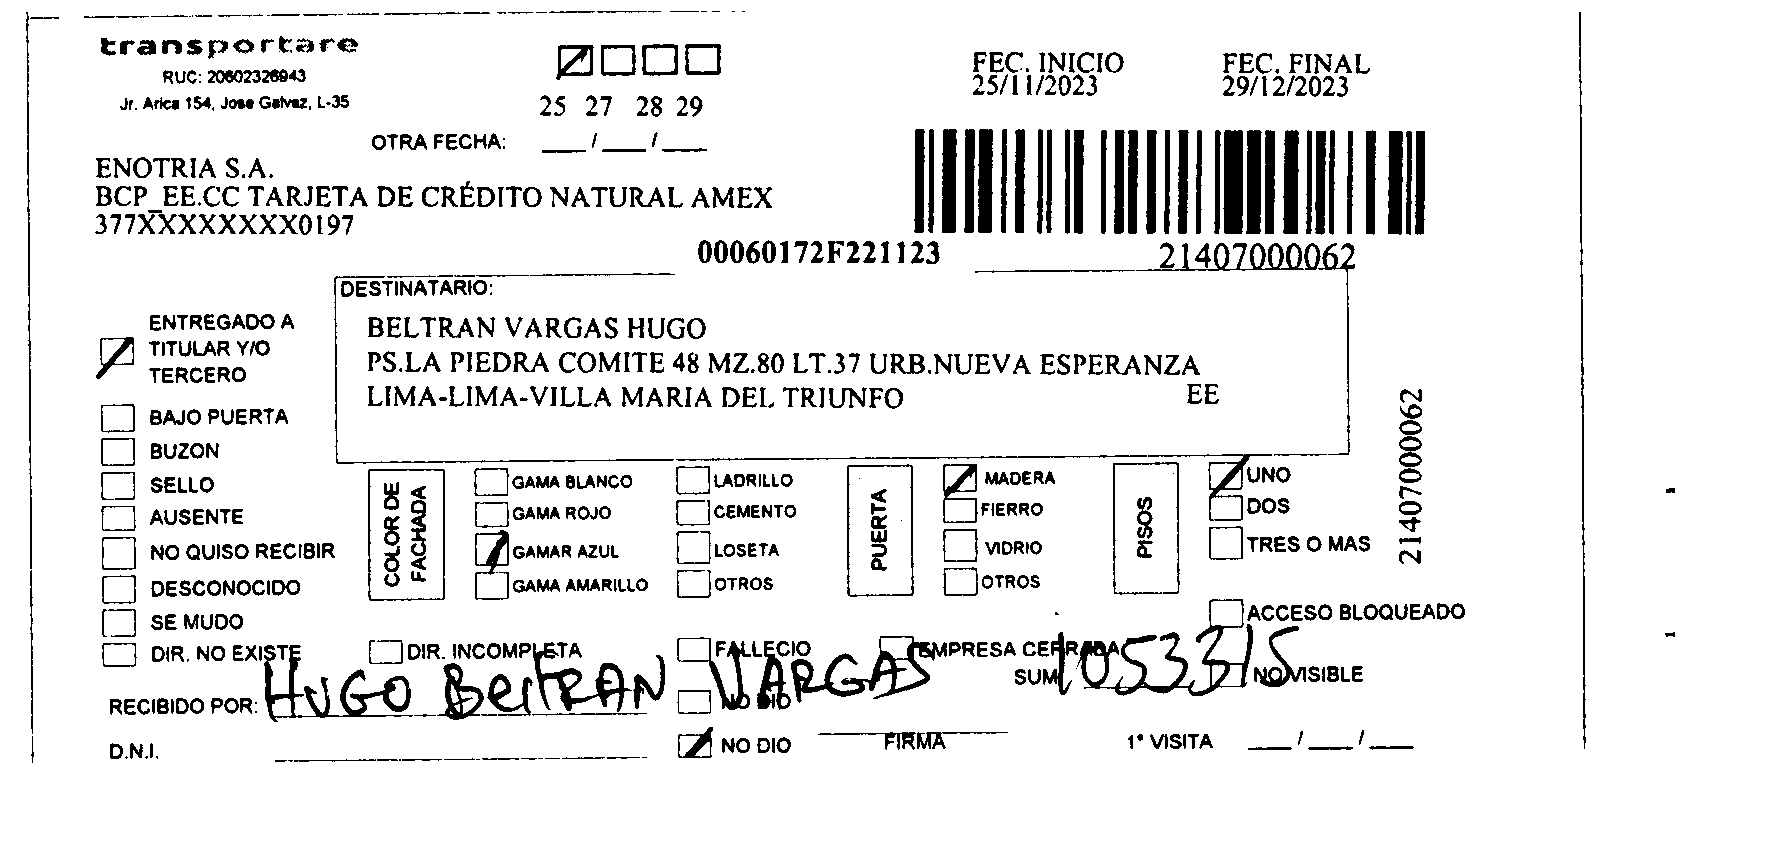 transportare
RUC: 20602326943
Jr. Arica 154, Jose Galvez, L-35
25 27 28 29
OTRA FECHA: ___/___/___
FEC. INICIO
25/11/2023
FEC. FINAL
29/12/2023
ENOTRIA S.A.
BCP_EE.CC TARJETA DE CRÉDITO NATURAL AMEX
377XXXXXXXXX0197
00060172F221123
21407000062
DESTINATARIO:
BELTRAN VARGAS HUGO
PS.LA PIEDRA COMITE 48 MZ.80 LT.37 URB.NUEVA ESPERANZA
LIMA-LIMA-VILLA MARIA DEL TRIUNFO EE
21407000062
ENTREGADO A
TITULAR Y/O
TERCERO
BAJO PUERTA
BUZON
SELLO
AUSENTE
NO QUISO RECIBIR
DESCONOCIDO
SE MUDO
DIR. NO EXISTE
COLOR DE
FACHADA
GAMA BLANCO
GAMA ROJO
GAMAR AZUL
GAMA AMARILLO
LADRILLO
CEMENTO
LOSETA
OTROS
PUERTA
MADERA
FIERRO
VIDRIO
OTROS
PISOS
UNO
DOS
TRES O MAS
ACCESO BLOQUEADO
DIR. INCOMPLETA
FALLECIO
EMPRESA CERRADA
SUM 1053315
NO VISIBLE
RECIBIDO POR: HUGO BelTRAN VARGAS
D.N.I.
NO DIO
FIRMA
1° VISITA ___/___/___